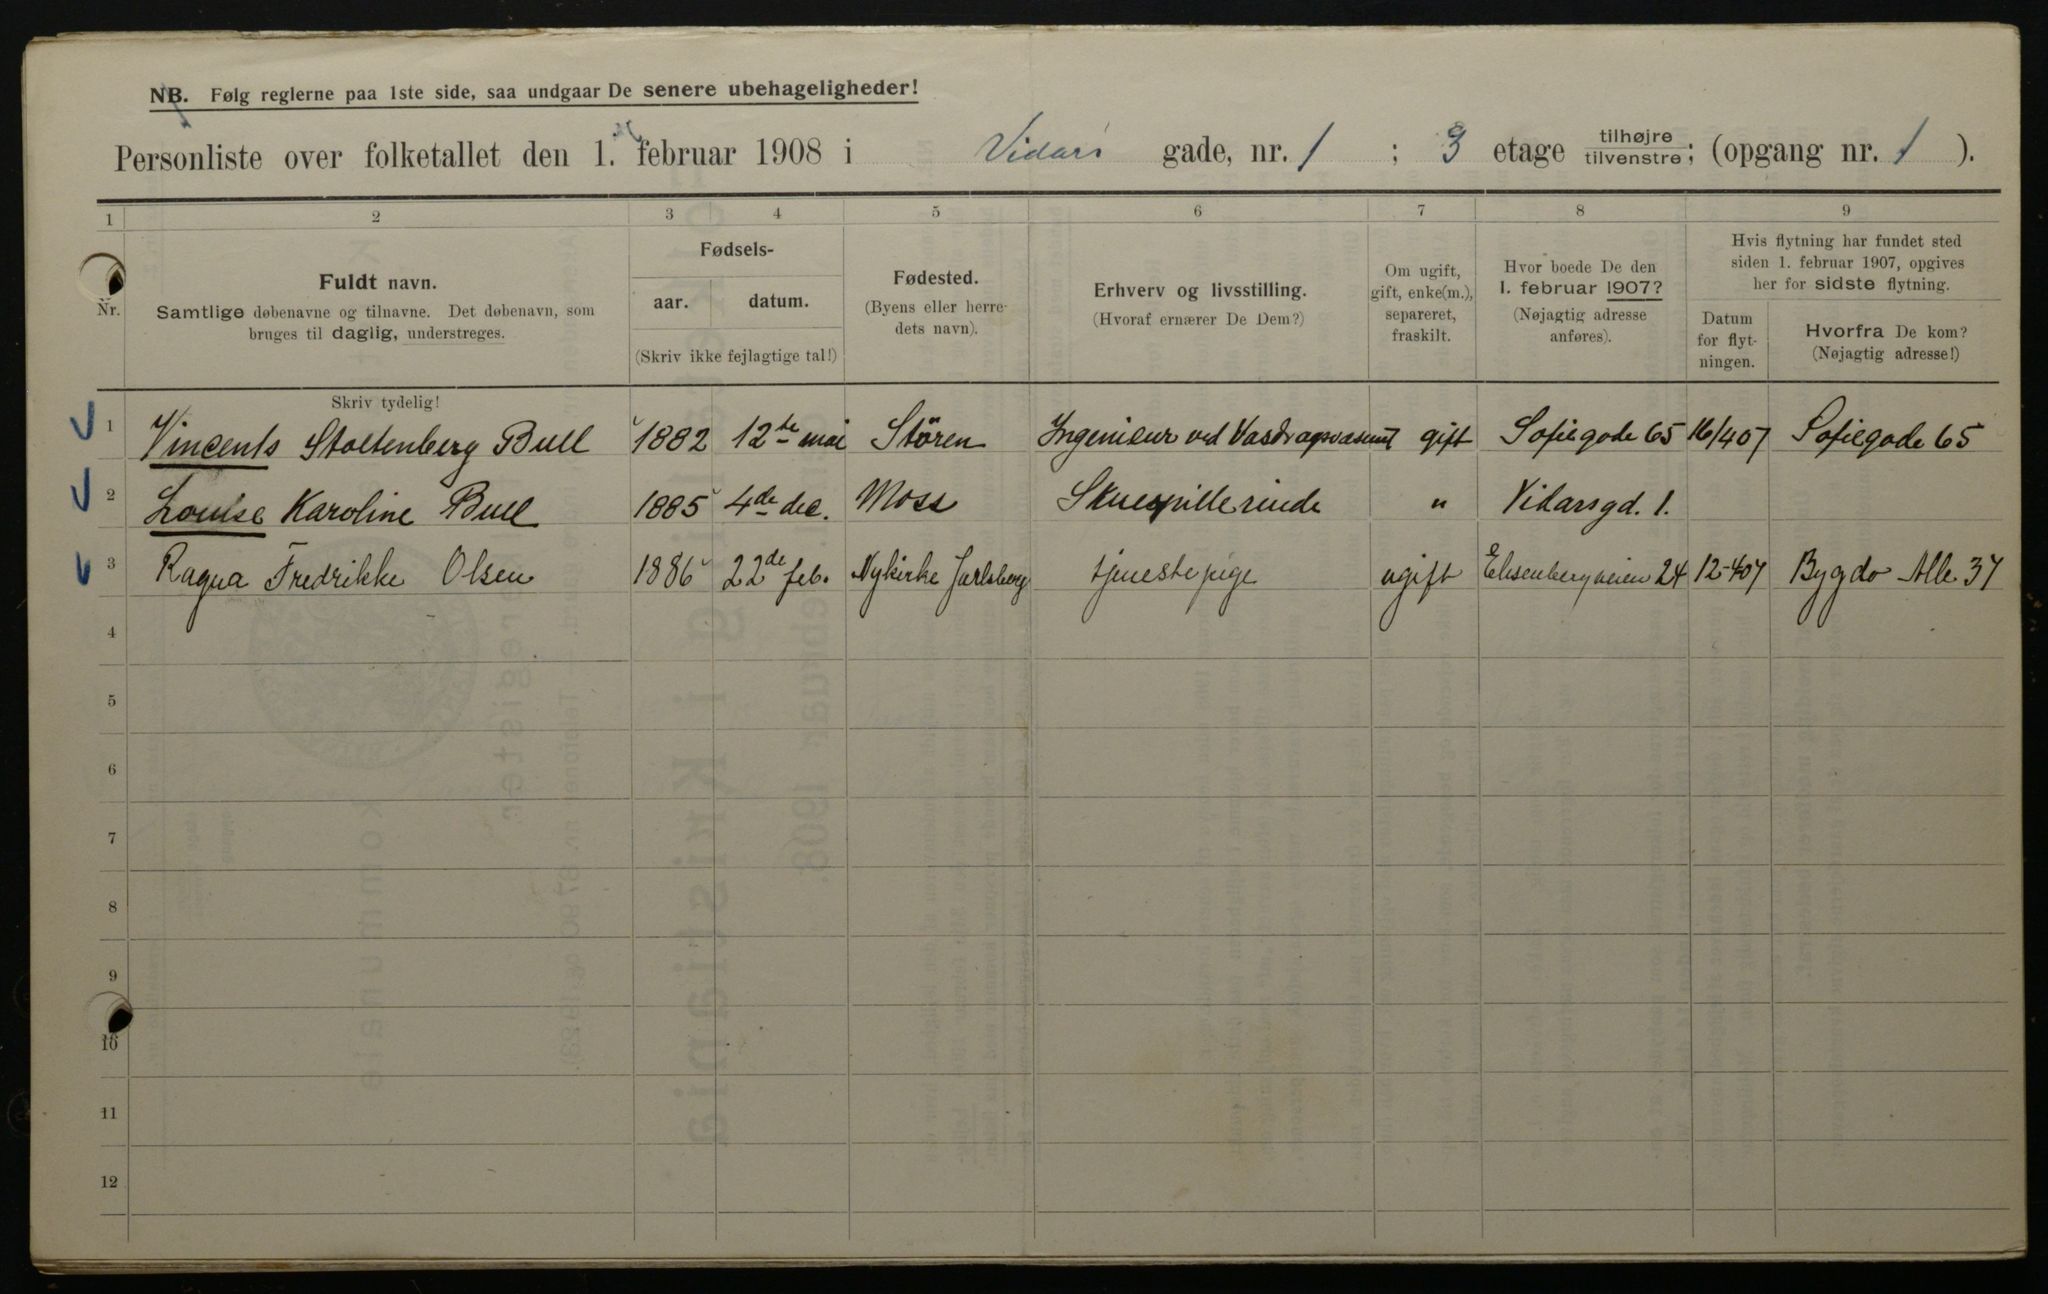 NB. Følg reglerne paa 1ste side, saa undgaar De senere ubehageligheder!
Personliste over folketallet den 1. februar 1908 i Vidars gade, nr. 1 ; 3 etage tilhøjre tilvenstre; (opgang nr. 1 ).
1 2 3 4 5 6 7 8 9
Nr.
Fuldt navn.
Samtlige døbenavne og tilnavne. Det døbenavn, som
bruges til daglig, understreges.
Fødsels-
aar. datum.
(Skriv ikke fejlagtige tal!)
Fødested.
(Byens eller herre-
dets navn).
Erhverv og livsstilling.
(Hvoraf ernærer De Dem?)
Om ugift,
gift, enke(m.),
separeret,
fraskilt.
Hvor boede De den
1. februar 1907?
(Nøjagtig adresse
anføres).
Hvis flytning har fundet sted
siden 1. februar 1907, opgives
her for sidste flytning.
Datum
for flyt-
ningen.
Hvorfra De kom?
(Nøjagtig adresse!)
Skriv tydelig!
1 Vincents Stoltenberg Bull 1882 12te mai Stören Ingeniør ved gift Sofiegade 65 16/4 07 Sofiegade 65
2 Louise Karoline Bull 1885 4de dec. Moss Skuespillerinde " Vidarsgd. 1.
3 Ragna Fredrikke Olsen 1886 22de feb. Nykirke Jarlsberg tjenestepige ugift Elisenbergveien 24 12-407 Bygdø Alle 37
4
5
6
7
8
9
10
11
12